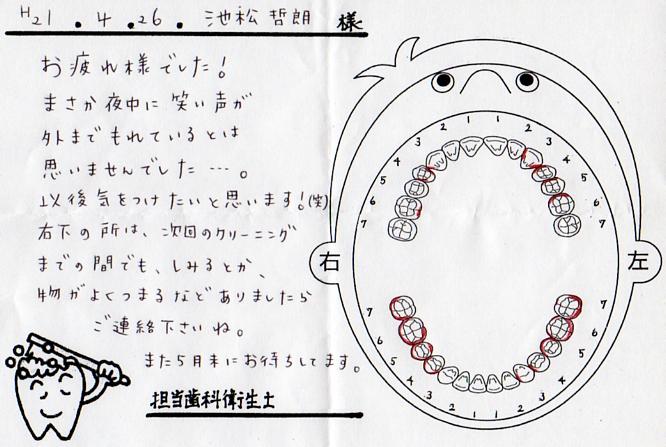 H21.4.26. 池松哲朗 様
お疲れ様でした!
まさか夜中に笑い声が
外までもれているとは
思いませんでした…。
以後気をつけたいと思います!(笑)
右下の所は、次回のクリーニング
までの間でも、しみるとか、
物がよくつまるなどありましたら
ご連絡下さいね。
また5月末にお待ちしてます。
担当歯科衛生士
1 1
2 2
3 3
4 4
5 5
6 6
7 7
右 左
7 7
6 6
5 5
4 4
3 3
2 2
1 1